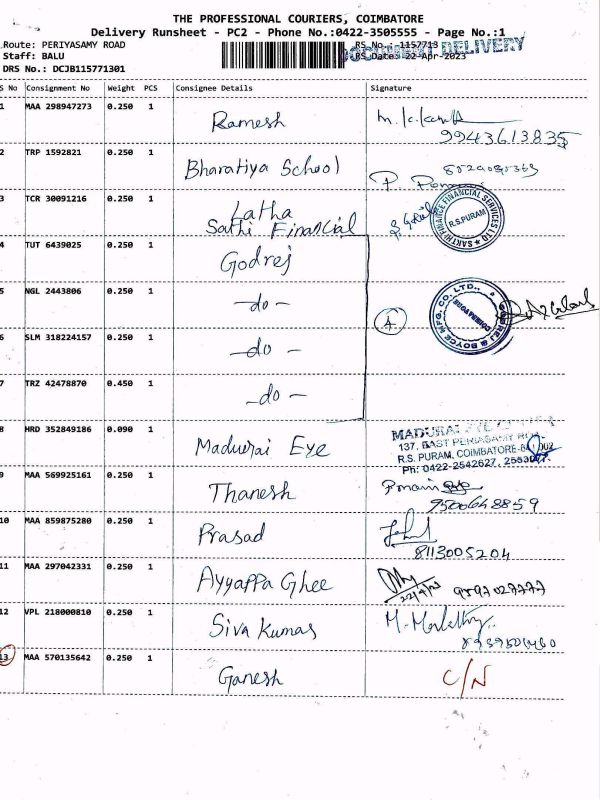 THE PROFESSIONAL COURIERS, COIMBATORE
Delivery Runsheet - PC2 - Phone No.:0422-3505555 - Page No.:1
Route: PERIYASAMY ROAD
RS No.:-1157713
DOCUMENT DELIVERY
Staff: BALU
RS Date: 22-Apr-2023
DRS No.: DCJB115771301
S No Consignment No Weight PCS Consignee Details Signature
1 MAA 298947273 0.250 1 Ramesh
9943613835
2 TRP 1592821 0.250 1 Bharatiya School
3 TCR 30091216 0.250 1 Latha
Sathi Financial
SAKTHI FINANCE FINANCIAL SERVICES LTD
R.S.PURAM
4 TUT 6439025 0.250 1 Godrej
5 NGL 2443806 0.250 1 -do-
4
GODREJ & BOYCE MFG. CO. LTD.,
COIMBATORE
6 SLM 318224157 0.250 1 -do-
7 TRZ 42478870 0.450 1 -do-
8 HRD 352849186 0.090 1 Madurai Eye
MADURAI EYE
137, EAST PERIASAMY
R.S. PURAM, COIMBATORE-
Ph: 0422-2542627,
9 MAA 569925161 0.250 1 Thanesh
9500648859
10 MAA 859875280 0.250 1 Prasad
8113005204
11 MAA 297042331 0.250 1 Ayyappa Ghee
12 VPL 218000810 0.250 1 Siva Kumar
13 MAA 570135642 0.250 1 Ganesh C/N